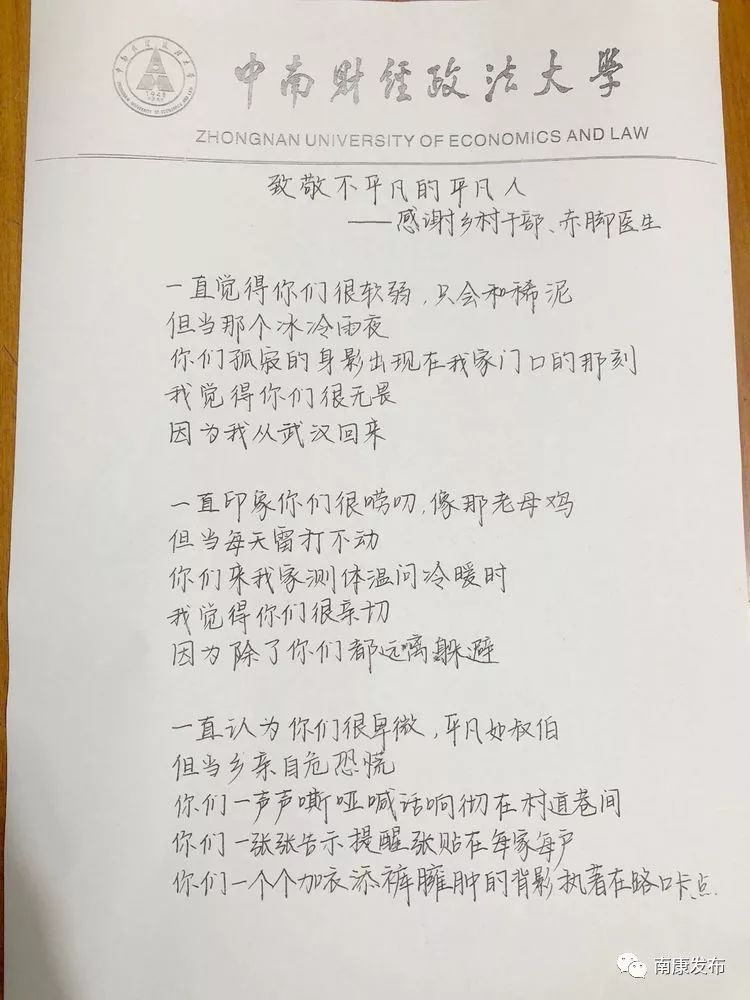 中南财经政法大学
ZHONGNAN UNIVERSITY OF ECONOMICS AND LAW
致敬不平凡的平凡人
——感谢乡村干部、赤脚医生
一直觉得你们很软弱,只会和稀泥
但当那个冰冷雨夜
你们孤寂的身影出现在我家门口的那刻
我觉得你们很无畏
因为我从武汉回来
一直印象你们很唠叨,像那老母鸡
但当每天雷打不动
你们来我家测体温问冷暖时
我觉得你们很亲切
因为除了你们都远离躲避
一直认为你们很卑微,平凡如叔伯
但当乡亲自危恐慌
你们一声声嘶哑喊话响彻在村道巷间
你们一张张告示提醒张贴在每家每户
你们一个个加衣添裤臃肿的背影执著在路口卡点.
南康发布